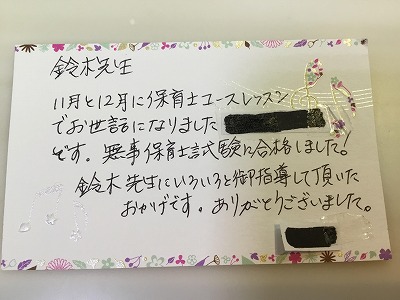 鈴木先生
11月と12月に保育士コースレッスン
でお世話になりました
です。無事保育士試験に合格しました!
鈴木先生にいろいろと御指導して頂いた
おかげです。ありがとうございました。